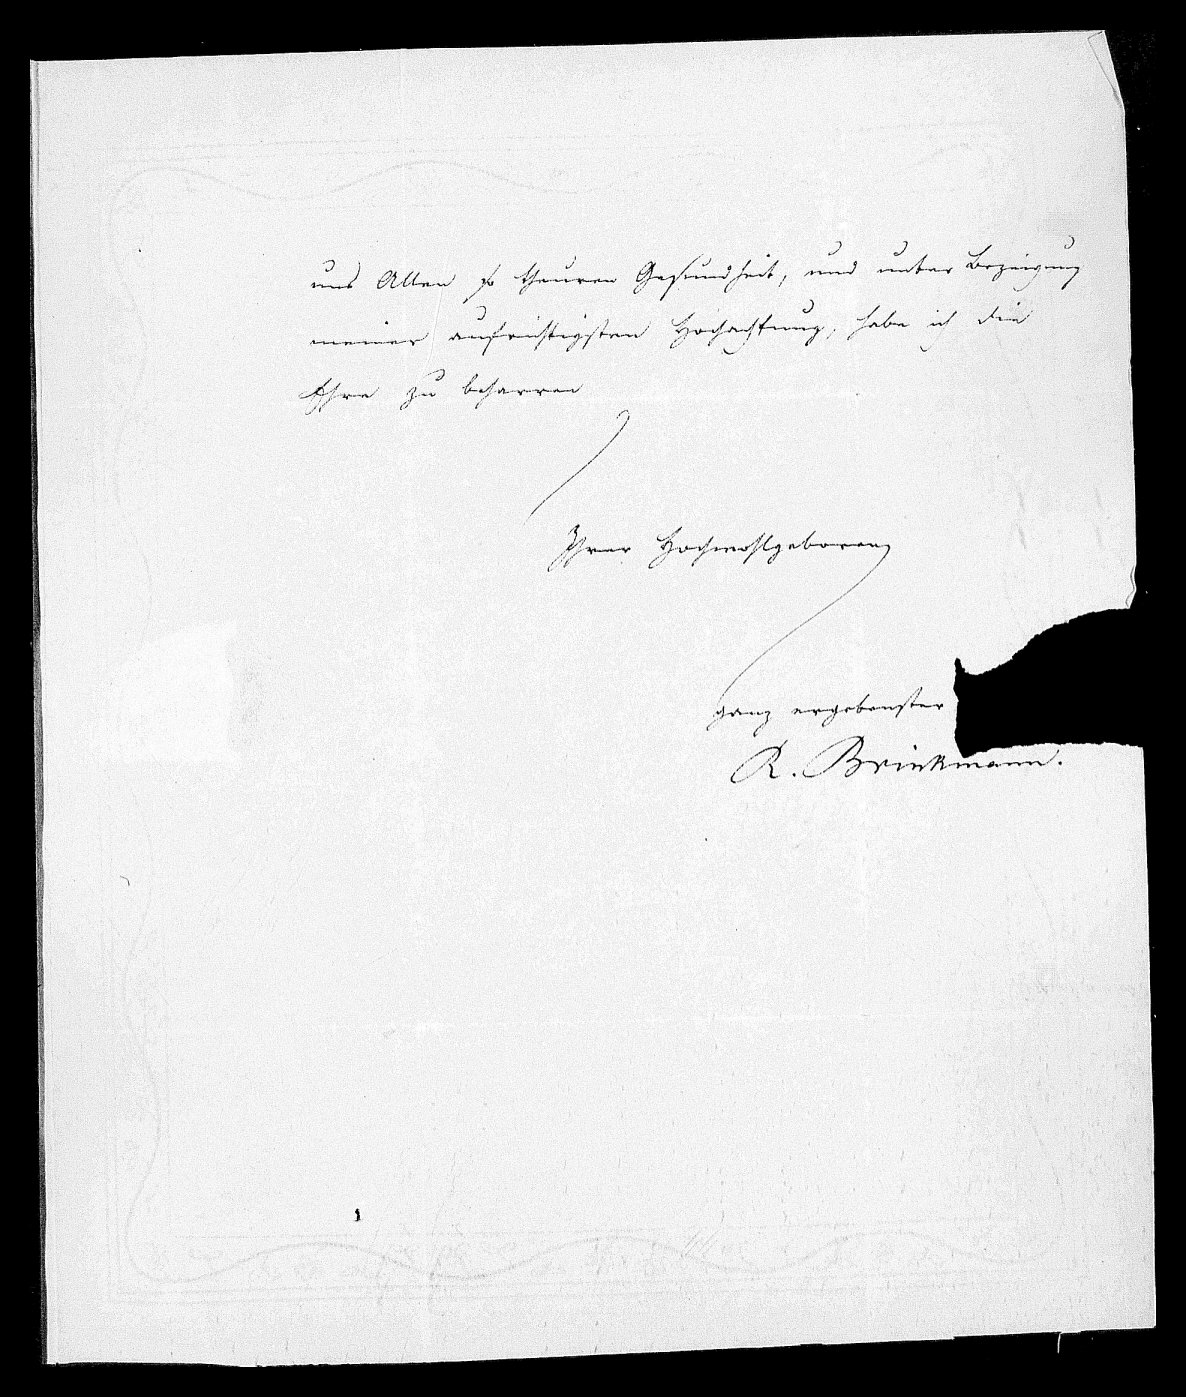 uns Allen so theuren Gesundheit, und unter Bezeigung
meiner aufrichtigsten Hochachtung, habe ich die
Ehre zu beharren
Ihrer Hochwohlgeboren
ganz ergebenster
R. Brinkmann.